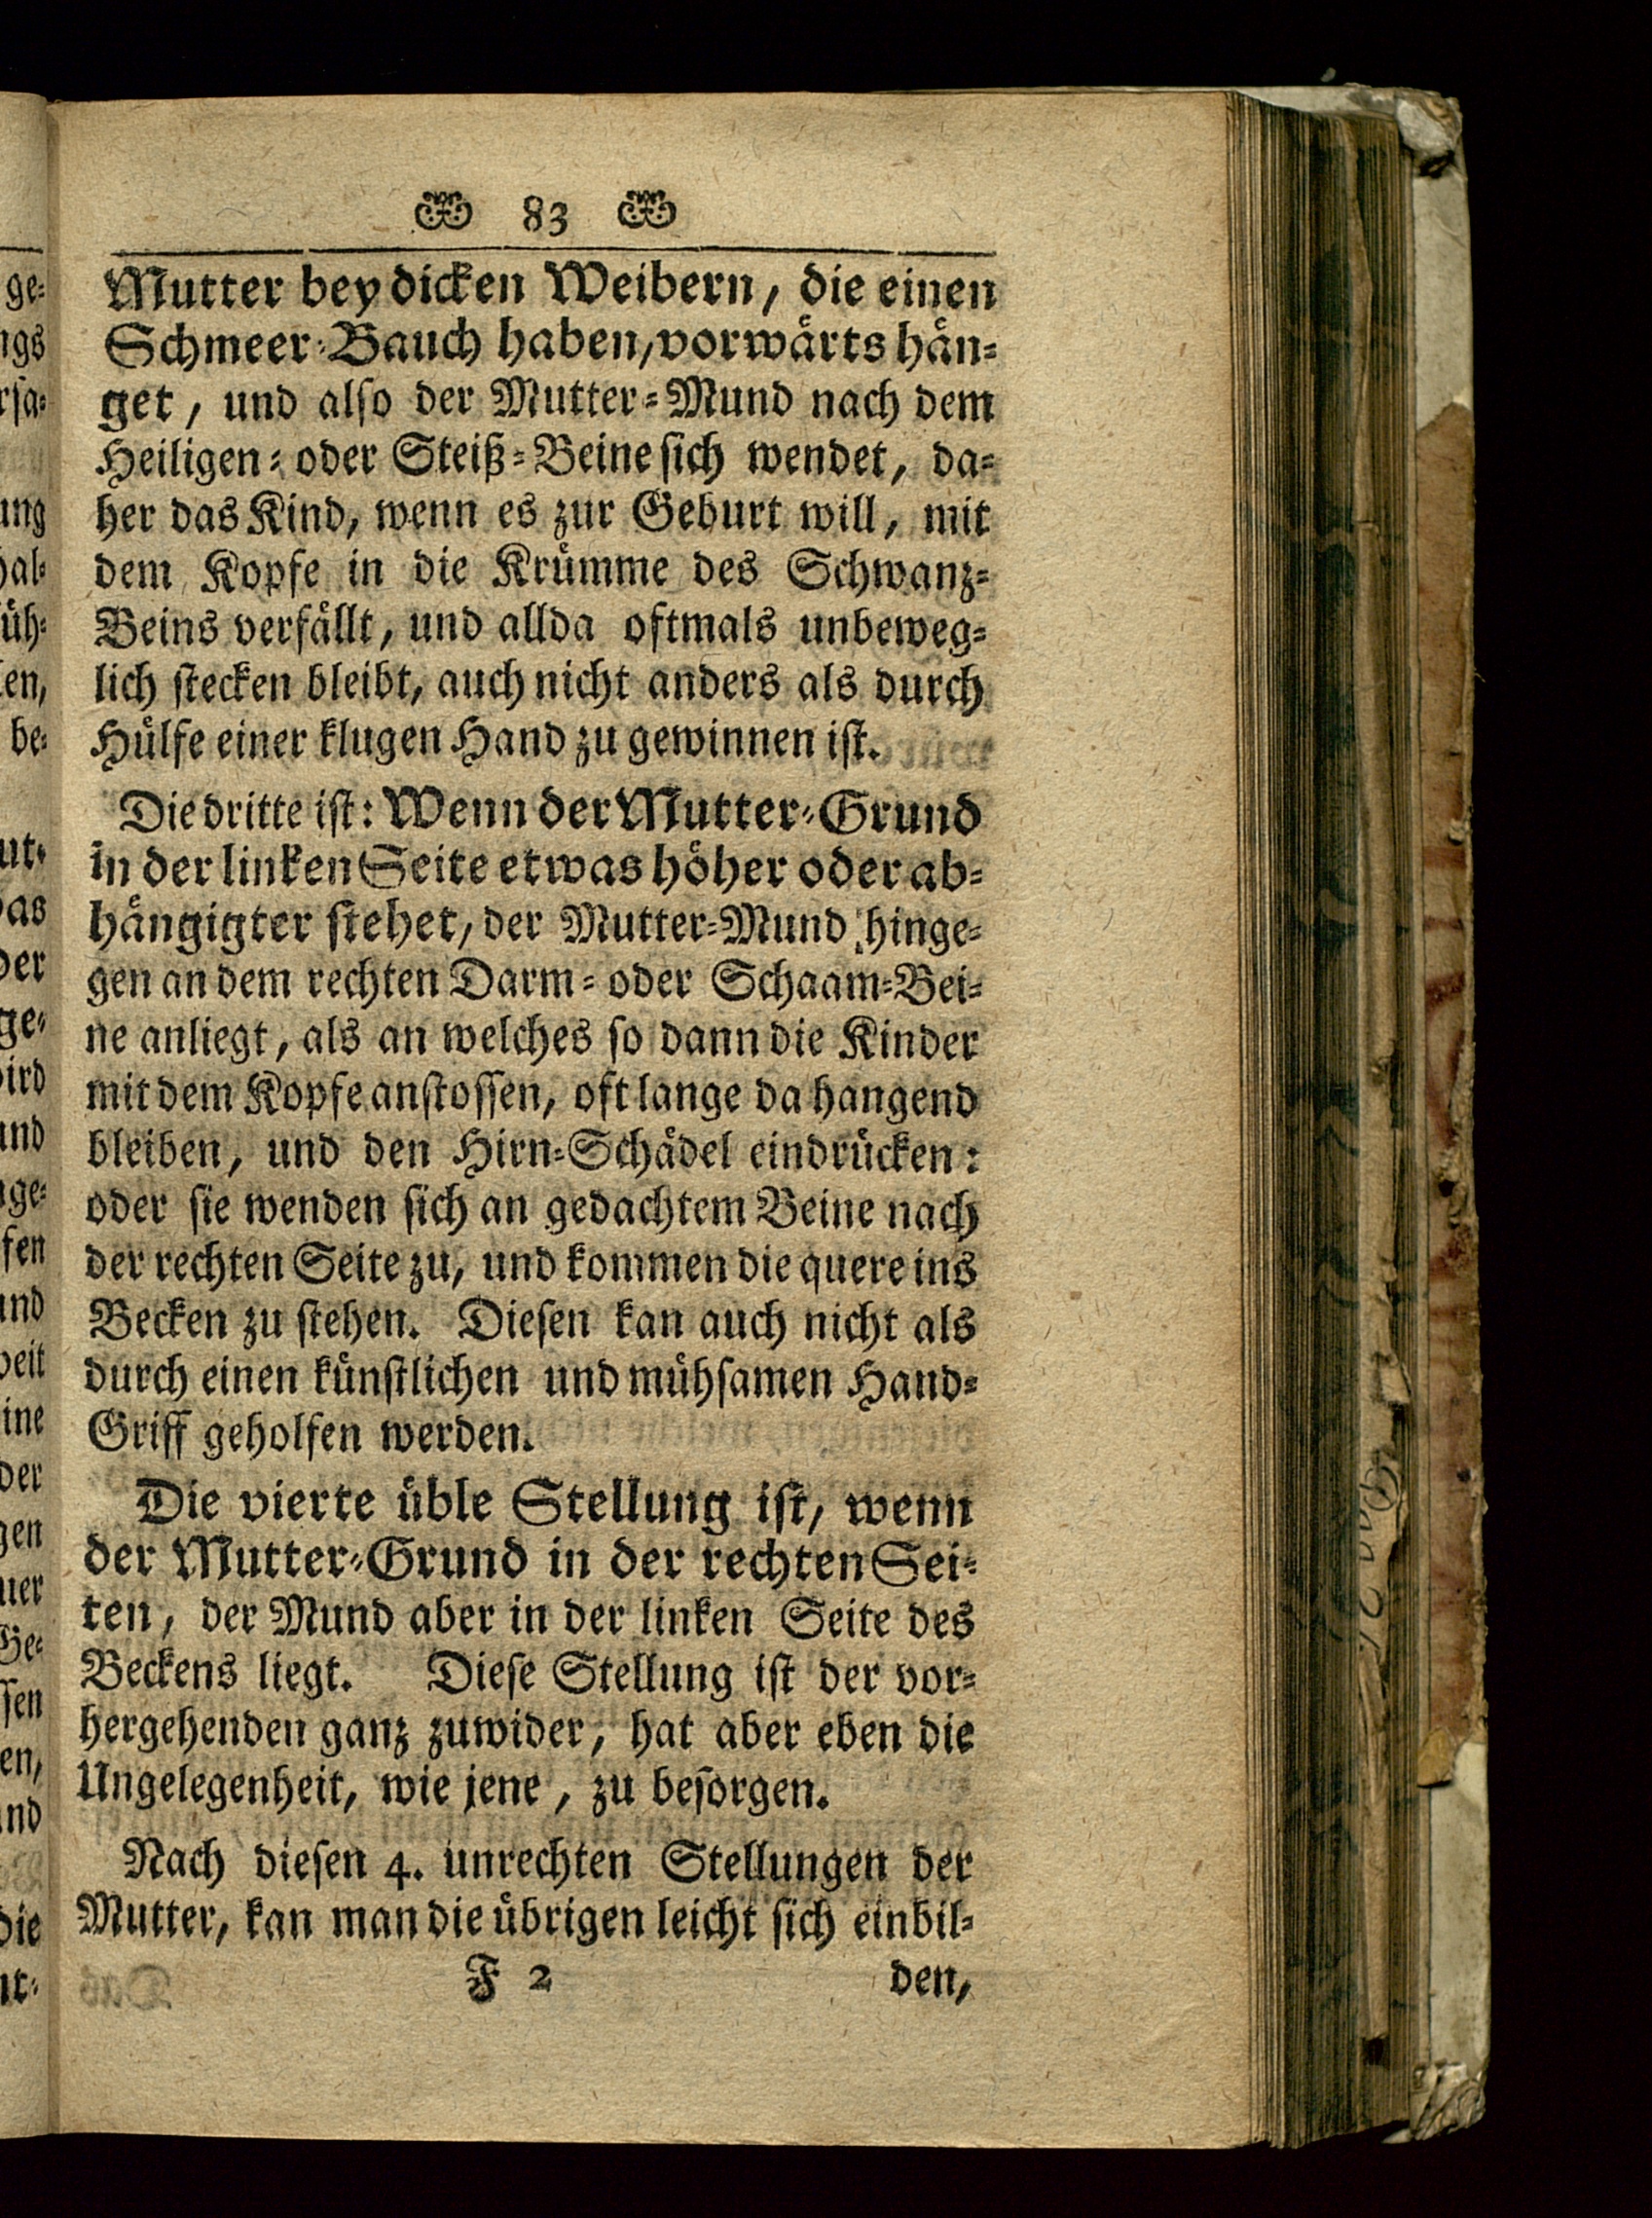 83
Mutter bey dicken Weibern, die einen
Schmeer-Bauch haben, vorwärts hän-
get, und also der Mutter-Mund nach dem
Heiligen- oder Steiß-Beine sich wendet, da-
her das Kind, wenn es zur Geburt will, mit
dem Kopfe in die Krümme des Schwanz-
Beins verfällt, und allda oftmals unbeweg-
lich stecken bleibt, auch nicht anders als durch
Hülfe einer klugen Hand zu gewinnen ist.
Die dritte ist: Wenn der Mutter-Grund
in der linken Seite etwas höher oder ab-
hängigter stehet, der Mutter-Mund hinge-
gen an dem rechten Darm- oder Schaam-Bei-
ne anliegt, als an welches so dann die Kinder
mit dem Kopfe anstossen, oft lange da hangend
bleiben, und den Hirn-Schädel eindrücken:
oder sie wenden sich an gedachtem Beine nach
der rechten Seite zu, und kommen die quere ins
Becken zu stehen. Diesen kan auch nicht als
durch einen künstlichen und mühsamen Hand-
Griff geholfen werden.
Die vierte üble Stellung ist, wenn
der Mutter-Grund in der rechten Sei-
ten, der Mund aber in der linken Seite des
Beckens liegt. Diese Stellung ist der vor-
hergehenden ganz zuwider, hat aber eben die
Ungelegenheit, wie jene, zu besorgen.
Nach diesen 4. unrechten Stellungen der
Mutter, kan man die übrigen leicht sich einbil-
F 2 den,